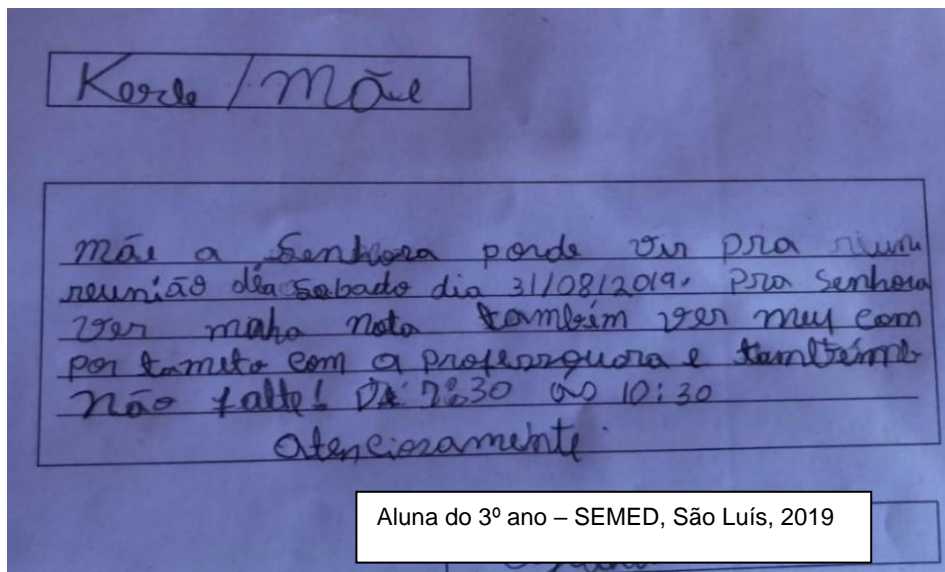 Kerde / Mãe
mãe a Senhora porde vir pra riuni
reunião dia Sabado dia 31/08/2019. Pra Senhora
ver minha nota também ver meu com
por tamito com a professquora e também
Não falte! Dé 7:30 as 10:30
atenciosamente.
Aluna do 3º ano – SEMED, São Luís, 2019